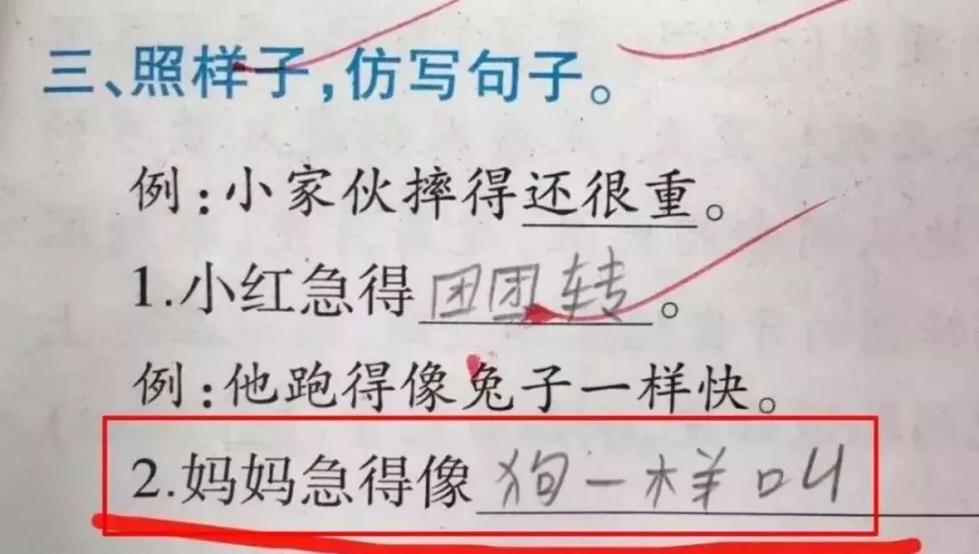 三、照样子,仿写句子。
例:小家伙摔得还很重。
1.小红急得团团转。
例:他跑得像兔子一样快。
2.妈妈急得像狗一样叫